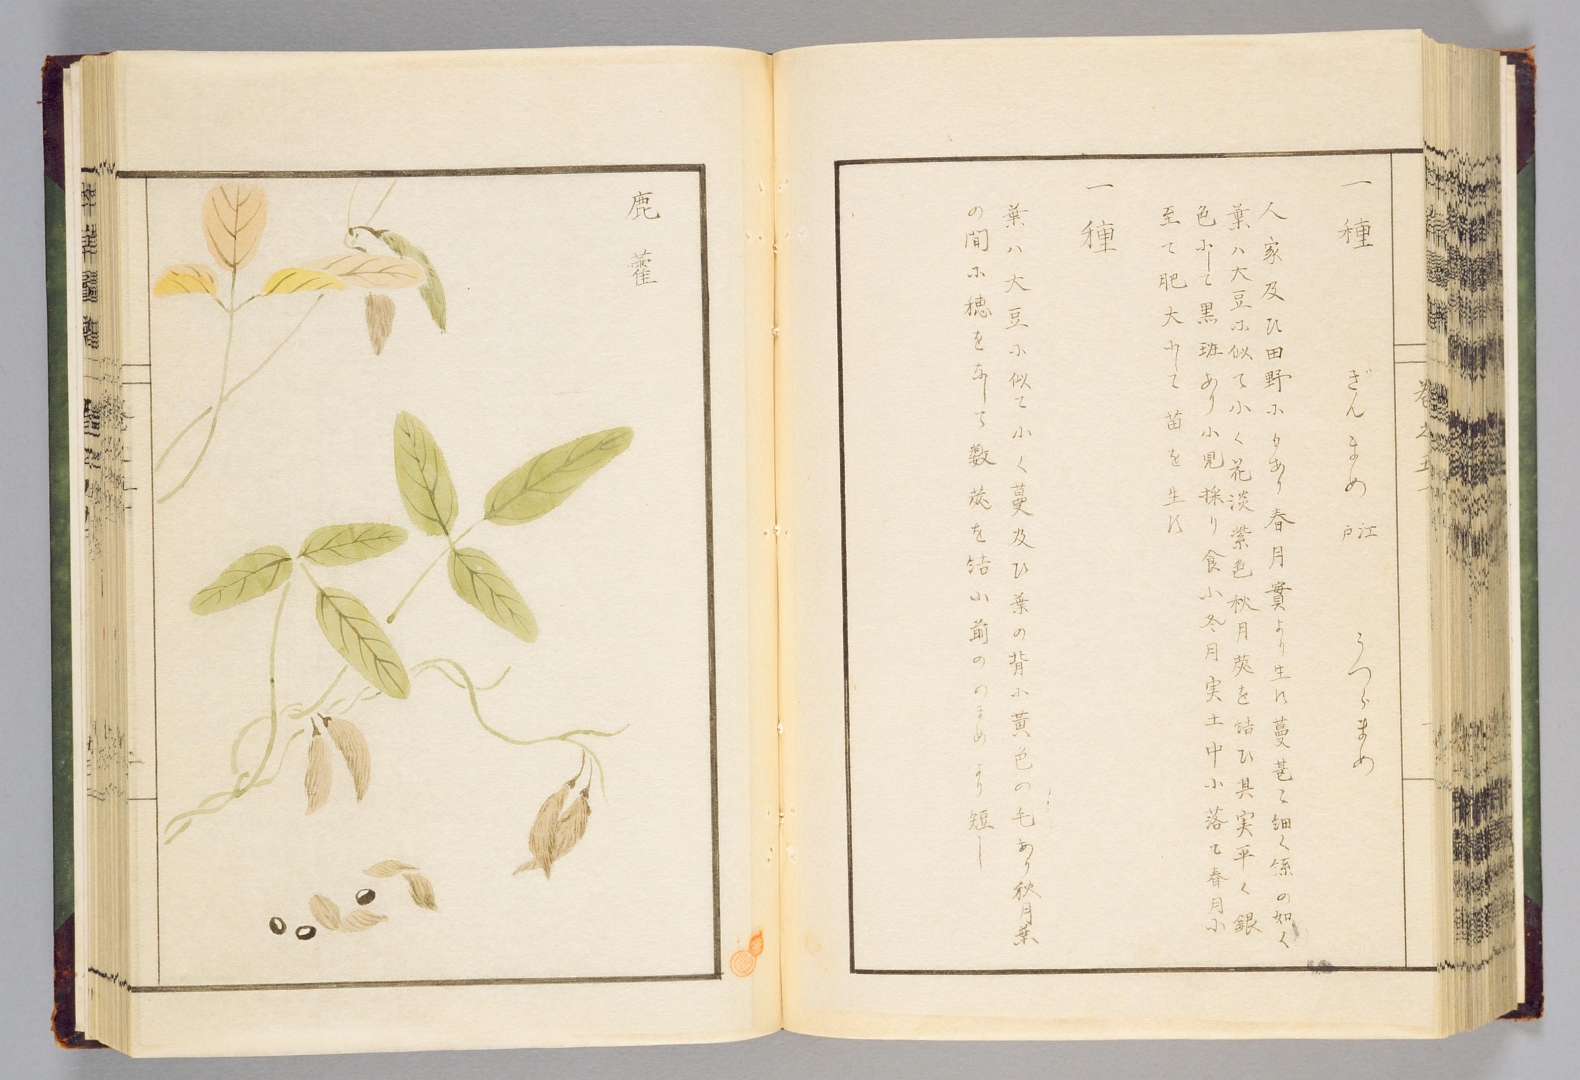 一種 ぎんまめ 江戸 うつらまめ
人家及ひ田野にもあり春月實より生れ蔓甚た細く絲の如く
葉ハ大豆に似て小く花淡紫色秋月莢を結ひ其実平く銀
色にして黒班あり小児採り食ふ冬月実土中に落て春月に
至て肥大にして苗を生す
一種
葉ハ大豆に似て小く蔓及ひ葉の背に黄色の毛あり秋月葉
の間に穂をなして数莢を結ふ前ののまめより短し
鹿藿